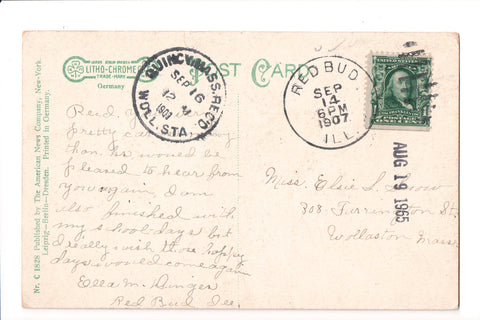 LITHO-CHROME
TRADE-MARK
Germany
POST CARD
QUINCY, MASS. REC'D
SEP 16
12 M
1907
WOLL. STA.
RED BUD
SEP
14
6 PM
1907
ILL.
AUG 19 1965
Nr. C 1828 Published by The American News Company, New-York.
Leipzig—Berlin—Dresden. Printed in Germany.
Rec'd your
pretty card
would be
pleased to hear from
you again. I am
also finished with
my school days but
I really wish those happy
days would come again
Ella M.
Red Bud Ill.
Miss. Elsie S. Snow
308 Farrington St.
Wollaston Mass.